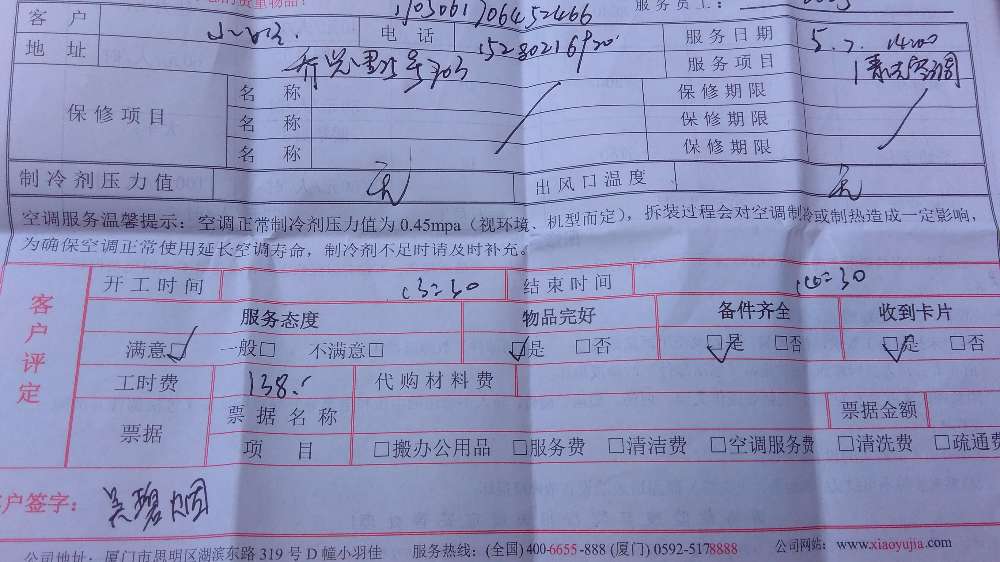 的贵重物品！
服务员工：
客户 电话 15280216920 服务日期 5.7. 1400
地址 乔光里25号703 服务项目 1清洗空调
保修项目 名称 保修期限
名称 保修期限
名称 保修期限
制冷剂压力值 元 出风口温度 元
空调服务温馨提示：空调正常制冷剂压力值为 0.45mpa（视环境、机型而定），拆装过程会对空调制冷或制热造成一定影响，
为确保空调正常使用延长空调寿命，制冷剂不足时请及时补充。
客户评定
开工时间 13=30 结束时间 16=30
服务态度 物品完好 备件齐全 收到卡片
满意□ 一般□ 不满意□ □是 □否 □是 □否 □是 □否
工时费 138. 代购材料费
票据 票据名称 票据金额
项目 □搬办公用品 □服务费 □清洁费 □空调服务费 □清洗费 □疏通费
客户签字：
公司地址：厦门市思明区湖滨东路 319 号 D 幢小羽佳 服务热线：(全国) 400-6655-888 (厦门) 0592-5178888 公司网站：www.xiaoyujia.com